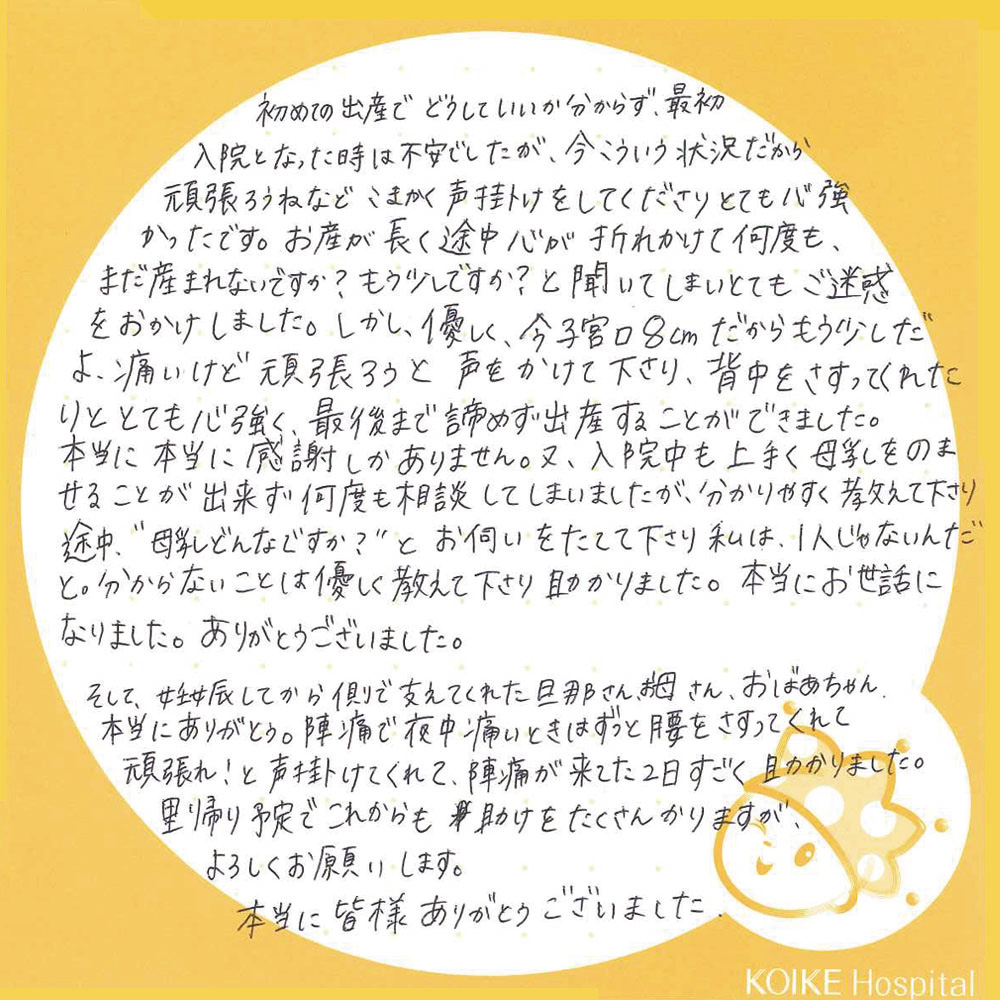 初めての出産で どうしていいか分からず、最初
入院となった時は不安でしたが、今こういう状況だから
頑張ろうねなど こまかく声掛けをしてくださりとても心強
かったです。お産が長く途中心が折れかけて何度も、
まだ産まれないですか？もう少しですか？と聞いてしまいとてもご迷惑
をおかけしました。しかし、優しく、今子宮口8cmだからもう少しだ
よ、痛いけど頑張ろうと 声をかけて下さり、背中をさすってくれた
りと とても心強く、最後まで諦めず出産することができました。
本当に本当に感謝しかありません。又、入院中も上手く母乳をのま
せることが出来ず何度も相談してしまいましたが、分かりやすく教えて下さり
途中、“母乳どんなですか？”と お伺いをたてて下さり私は、1人じゃないんだ
と。分からないことは優しく教えて下さり助かりました。本当にお世話に
なりました。ありがとうございました。
そして、妊娠してから側で支えてくれた旦那さん、お母さん、おばあちゃん、
本当にありがとう。陣痛で夜中痛いときはずっと腰をさすってくれて
頑張れ！と声掛けてくれて、陣痛が来てた2日すごく助かりました。
里帰り予定でこれからも 助けをたくさんかりますが、
よろしくお願いします。
本当に皆様ありがとうございました.
KOIKE Hospital